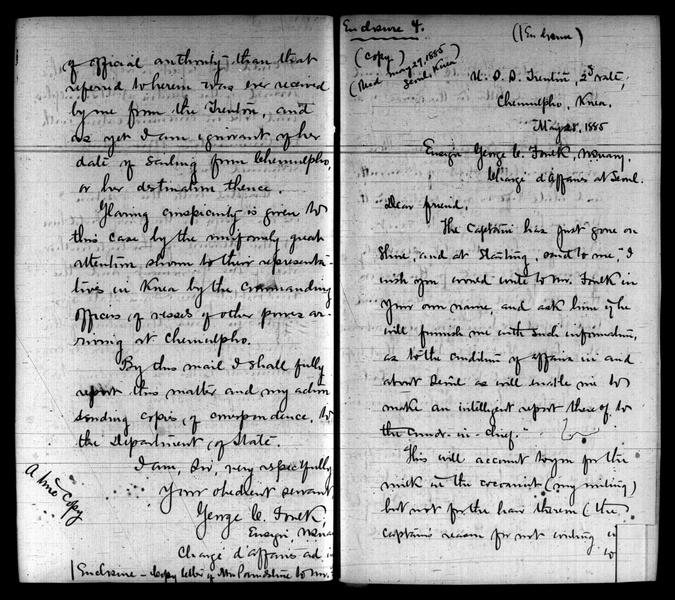 of official authority than that
referred to herein was ever received
by me from the Trenton, and
as yet I am ignorant of her
date of sailing from Chemulpho,
or her destination thence.
Glaring conspicuity is given to
this case by the uniformly great
attention shown to their representa-
tives in Korea by the commanding
officers of vessels of other powers ar-
riving at Chemulpho.
By this mail I shall fully
report this matter and my action
sending copies of correspondence, to
the Department of State.
I am, Sir, very respectfully
Your obedient servant
George C. Foulk,
Ensign,
Chargé d'affaires ad i
A true Copy
Enclosure - Copy letter of to Mr.
Enclosure 4.
(Enclosure)
(Copy)
(Recd May 29, 1885
Seoul, Korea)
U.S.S. Trenton, 2d rate,
Chemulpho, Korea,
May 28, 1885
Ensign George C. Foulk, U.S. Navy,
Chargé d'affaires at Seoul.
Dear friend,
The Captain has just gone on
shore, and at starting, said to me, "I
wish you would write to Mr. Foulk in
your own name, and ask him if he
will furnish me with such information,
as to the condition of affairs in and
about Seoul as will enable me to
make an intelligent report thereof to
the Comdr. in chief."
This will account to you for the
milk in the cocoanut (my writing)
but not for the hair thereon (the
Captain's reason for not writing
to